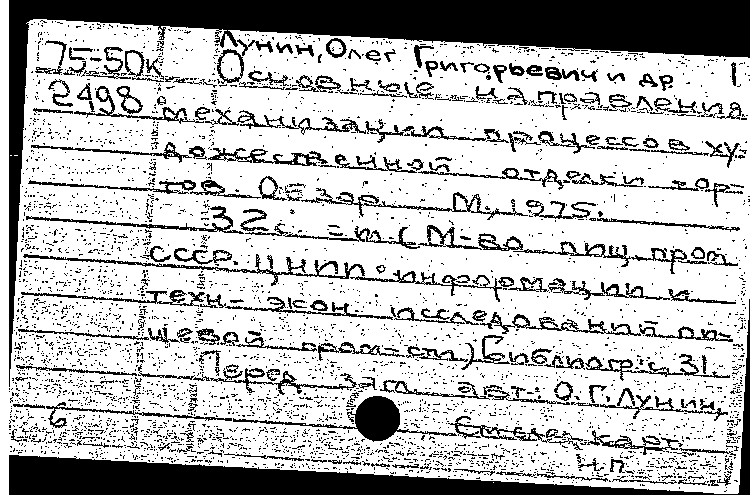 75-50к Лунин, Олег Григорьевич и др 1
2498 Основные направления
механизации процессов ху-
дожественной отделки тор-
тов. Обзор. М., 1975.
32с. (М-во пищ. пром
СССР. ЦНИИ информации и
техн-экон. исследований пи-
щевой пром-сти) Библиогр: с. 31.
Перед загл. авт.: О.Г. Лунин,
6 карт.
н.п.